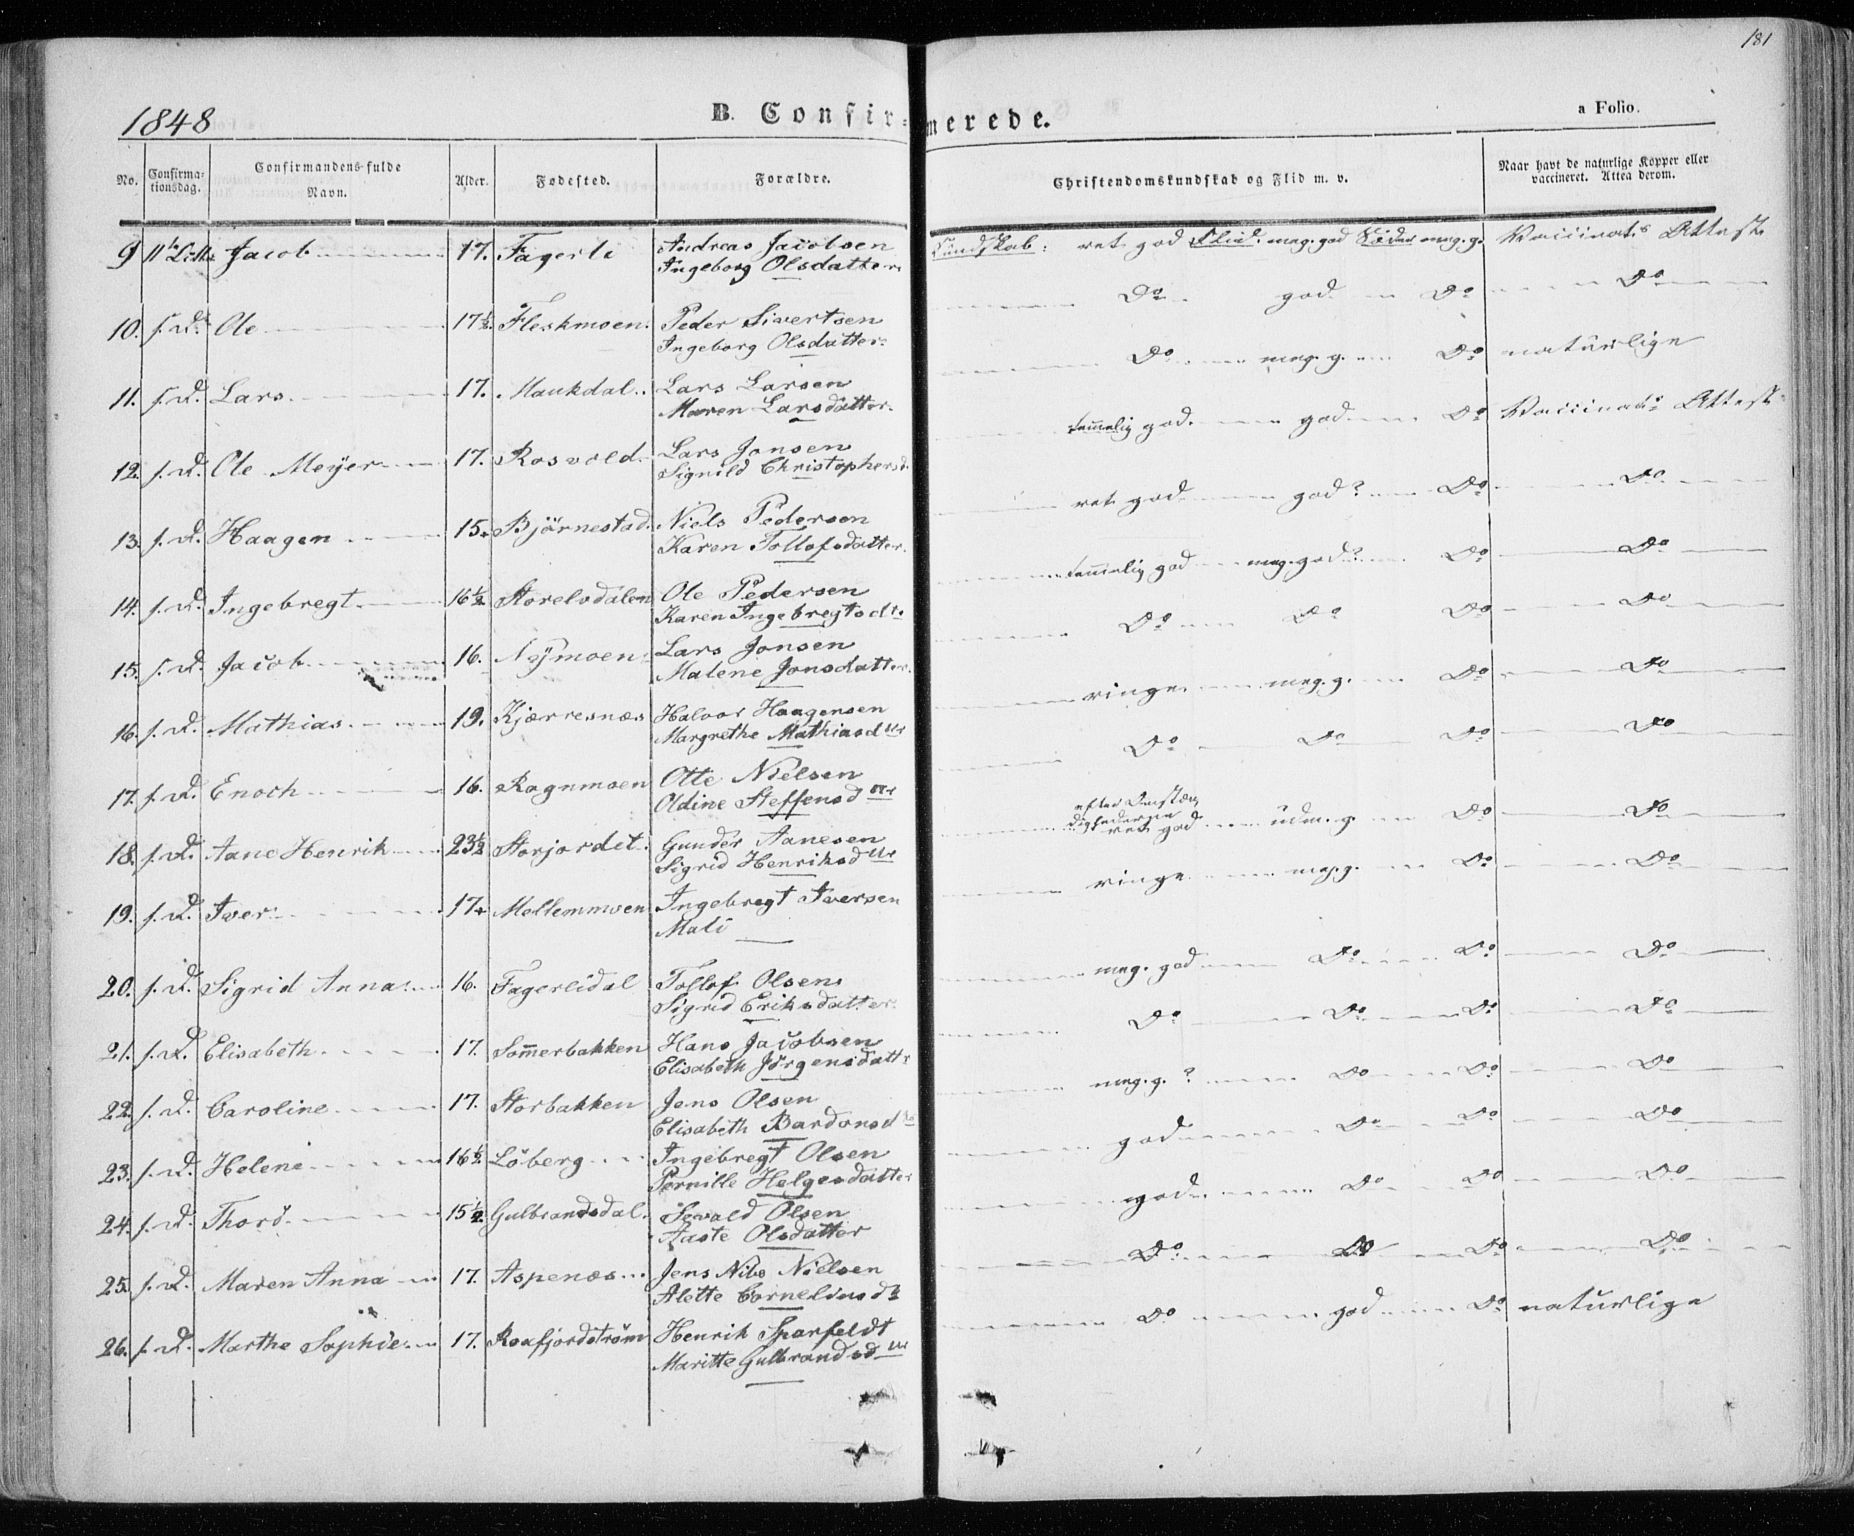 181
1848 B. Confirmerede. a Folio.
No. Confirmationsdag. Confirmandens fulde Navn. Alder. Fødested. Forældre. Christendomskundskab og Flid m. v. Naar havt de naturlige Kopper eller vaccineret. Attea derom.
9 Jacob 17. Fagerli Andreas Jacobsen Kundskab: ret god Flid: meg. god Sæder meg. g. Vaccinat.s Attest
Ingeborg Olsdatter
10. f. D. Ole 17½ Fleskmoen. Peder Sivertsen Do god Do Do
Ingeborg Olsdatter
11. f. D. Lars 17. Maukdal. Lars Larsen Do meg. g. Do naturlige
Maren Larsdatter
12. f. D. Ole Meyer 17. Rosvold Lars Jonsen temelig god. god Do Vaccinat.s Attest
Signild Christophersd.
13. f. D. Haagen 15. Bjørnestad. Niels Pedersen ret god god? Do Do
Karen Tollofsdatter
14. f. D. Ingebregt 16½ Storelvdalen Ole Pedersen temelig god meg. god? Do Do
Karen Ingebregtsdtr
15. f. D. Jacob 16. Nÿmoen Lars Jonsen Do Do Do Do
Malene Jonsdatter
16. f. D. Mathias 19. Kjærresnæs Halvor Haagensen ringe meg. g. Do Do
Margrethe Mathiasdtr
17. f. D. Enoch 16. Rognmoen Otte Nielsen Do Do Do Do
Oldine Steffensdtr
18. f. D. Aane Henrik 23½ Storjordet. Gunder Aanesen efter Omstændighederne ret god udm. g. Do Do
Sigrid Henriksdtr
19. f. D. Iver 17. Mellemmoen Ingebregt Iversen ringe meg. g. Do Do
Mali
20. f. D. Sigrid Anna 16. Fagerlidal Tollof Olsen meg. god Do Do Do
Sigrid Eriksdatter
21. f. D. Elisabeth 17. Sommerbakken Hans Jacobsen Do Do Do Do
Elisabeth Jørgensdattr
22. f. D. Caroline 17. Storbakken Jens Olsen meg. g.? Do Do Do
Elisabeth Bardonsd
23. f. D. Helene 16½ Löberg Ingebregt Olsen god Do Do Do
Pernille Helgesdatter
24. f. D. Thord 15½ Gulbrandsdal Sevald Olsen god Do Do Do
Aaste Olsdatter
25. f. D. Maren Anna 17. Aspenæs Jens Nibe Nielsen Do Do Do Do
Alette Corneliusd
26. f. D. Marthe Sophie 17. Roafjordstrøm Henrik Sparfeldt Do god Do naturlige
Maritte Gulbrandsdtr